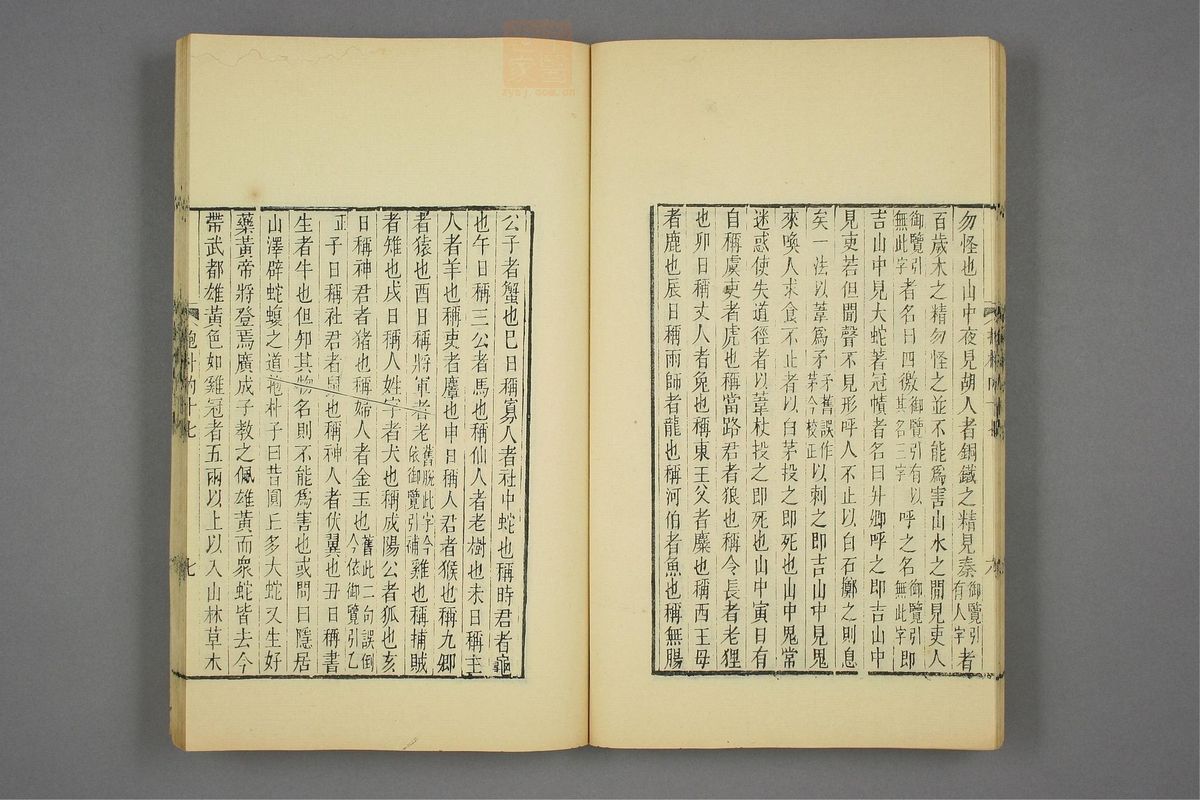 勿怪也山中夜見胡人者銅鐵之精見秦御覽引有人字者
百歲木之精勿怪之並不能爲害山水之間見吏人
御覽引無此字者名曰四徼御覽引有以其名三字呼之名御覽引無此字卽
吉山中見大蛇著冠幘者名曰升卿呼之卽吉山中
見吏若但聞聲不見形呼人不止以白石擲之則息
矣一法以葦爲矛矛舊誤作茅今校正以刺之卽吉山中見鬼
來喚人求食不止者以白茅投之卽死也山中鬼常
迷惑使失道徑者以葦杖投之卽死也山中寅日有
自稱虞吏者虎也稱當路君者狼也稱令長者老狸
也卯日稱丈人者兔也稱東王父者麋也稱西王母
者鹿也辰日稱雨師者龍也稱河伯者魚也稱無腸
公子者蟹也巳日稱寡人者社中蛇也稱時君者龜
也午日稱三公者馬也稱仙人者老樹也未日稱主
人者羊也稱吏者麞也申日稱人君者猴也稱九卿
者猿也酉日稱將軍者老舊脫此字今依御覽引補雞也稱捕賊
者雉也戌日稱人姓字者犬也稱成陽公者狐也亥
日稱神君者豬也稱婦人者金玉也舊此二句誤倒今依御覽引乙
正子日稱社君者鼠也稱神人者伏翼也丑日稱書
生者牛也但知其物名則不能爲害也或問曰隱居
山澤辟蛇蝮之道抱朴子曰昔圓丘多大蛇又生好
藥黃帝將登焉廣成子敎之佩雄黃而衆蛇皆去今
帶武都雄黃色如雞冠者五兩以上以入山林草木
抱朴內十七
七